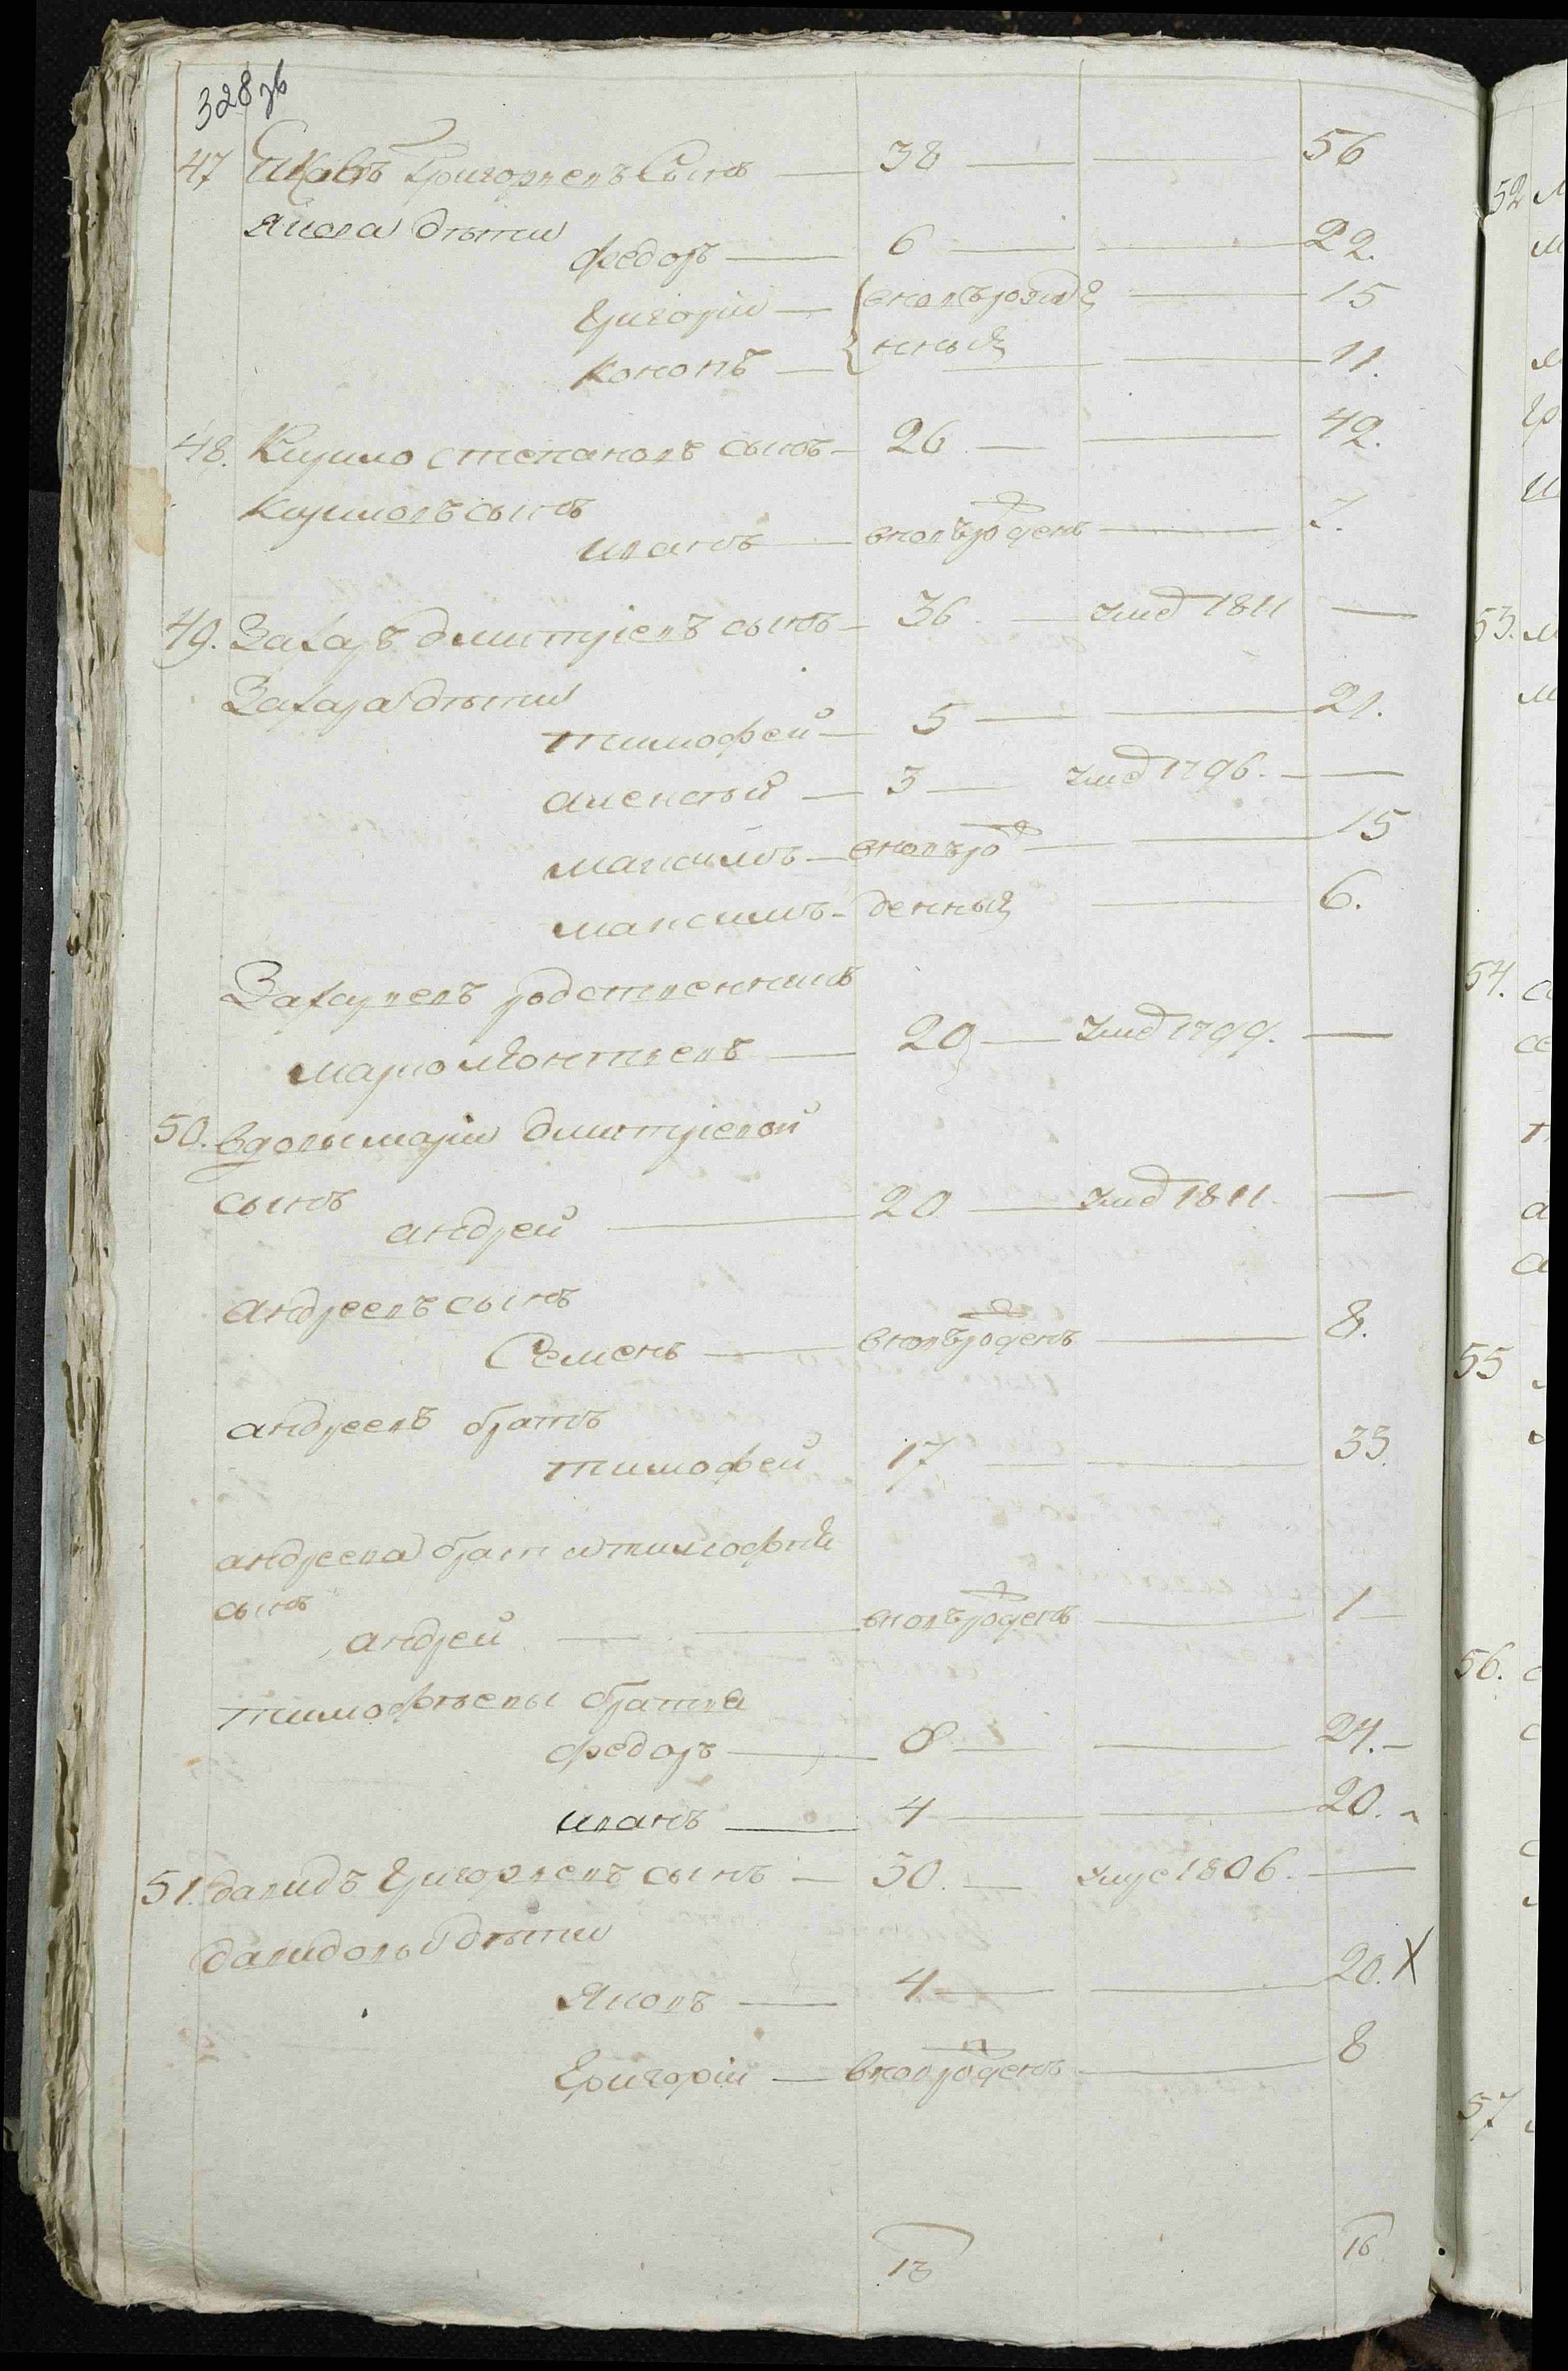 328 зв
47 Яковъ Григорьевъ Сынъ — 38 — — 56
Якова дѣти
Федоръ — 6 — — 22.
Григорій — вновьрожде — 15
Кононъ — нныя — 11.
48. Кирило степановъ сынъ — 26 — — 42.
Кириловъ сынъ
иванъ — вновьрожденъ — 7.
49. Захаръ дмитріевъ сынъ — 36 — умер 1811 —
Захара дѣти
тимофей — 5 — — 21.
алексѣй — 3 — умер 1796. —
максимъ — вновьрож — — 15
максимъ — денныя — 6.
Захарьевъ родственникъ
марко леонтьевъ — 20 — умер 1799. —
50. вдовы марьи дмитріевой
сынъ
андрей — 20 — умер 1811. —
андреевъ сынъ
Семенъ — вновьрожденъ — 8.
андреевъ братъ
тимофей 17 — — 33.
андреева брата тимофея
сынъ
андрей — — вновьрожденъ — 1 —
тимофѣевы братья
федоръ — 8 — — 24. —
иванъ — 4 — — 20.
51. давидъ Григорьевъ сынъ — 30. — умре 1806. —
давидовы дѣти
Яковъ — 4 — — 20. X
Григорій — вновьрожденъ — 8
13
16
52
53.
54.
55
56.
57